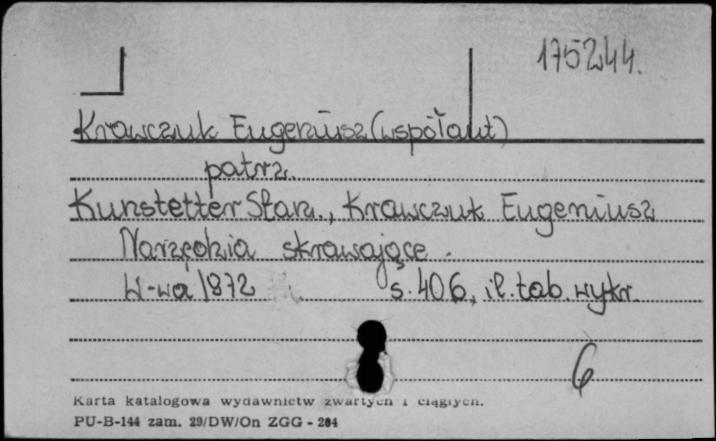 175244.
Krawczuk Eugeniusz (współaut)
patrz.
Kunstetter Stan., Krawczuk Eugeniusz
Narzędzia skrawające.
W-wa 1872 s. 406, il. tab. wykr.
6
Karta katalogowa wydawnictw zwartych i ciągłych.
PU-B-144 zam. 29/DW/On ZGG - 284